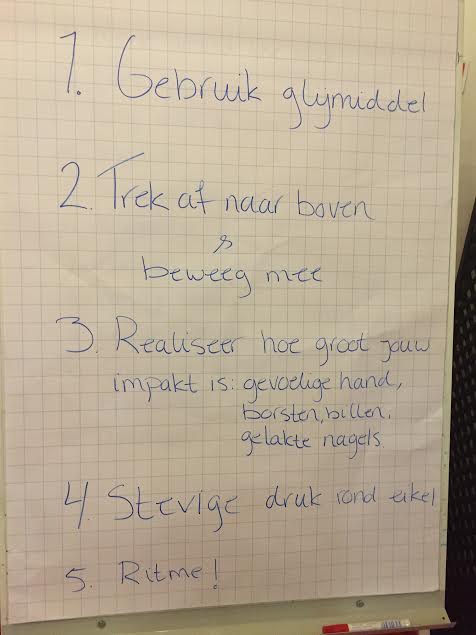 1. Gebruik glymiddel
2. Trek af naar boven
&
beweeg mee
3. Realiseer hoe groot jouw
impakt is: gevoelige hand,
borsten, billen,
gelakte nagels.
4. Stevige druk rond eikel
5. Ritme!